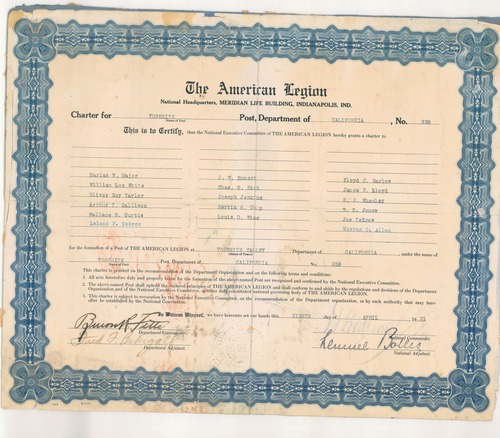 The American Legion
National Headquarters, MERIDIAN LIFE BUILDING, INDIANAPOLIS, IND.
Charter for YOSEMITE Post, Department of CALIFORNIA, No. 258
Name of Post
This is to Certify, that the National Executive Committee of THE AMERICAN LEGION hereby grants a charter to
Harlan W. Major J. W. Floyd C.
William Lee White Chas. B. Rich James V. Lloyd
Oliver Guy Taylor Joseph Jenkins
Arthur T. Gallison Martin H. W. K. Jones
Wallace B. Curtis Louis D. Joe
Leland F. Warren O. Allen
for the formation of a Post of THE AMERICAN LEGION at YOSEMITE VALLEY Department of CALIFORNIA under the name of
YOSEMITE CALIFORNIA No. 258
This charter is granted on the recommendation of the Department Organization and on the following terms and conditions:
1. All acts heretofore duly and properly taken for the formation of the above-named Post are recognized and confirmed by the National Executive Committee.
2. The above-named Post shall uphold the principles of THE AMERICAN LEGION and shall conform to and abide by the regulations and decisions of the Department Organization and of the National Executive Committee, or other duly constituted national governing body of THE AMERICAN LEGION.
3. This charter is subject to revocation by the National Executive Committee, on the recommendation of the Department organization, or by such authority that may hereafter be established by the National Convention.
In Witness Whereof, we have hereunto set our hands this EIGHTH day of APRIL
Department Commander
National Commander
Lemuel Bolles
Department Adjutant
National Adjutant